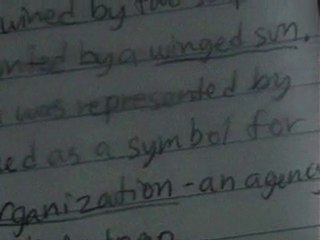 wined by two
by a winged sun.
was represented by
ed as a symbol for
rganization - an agency